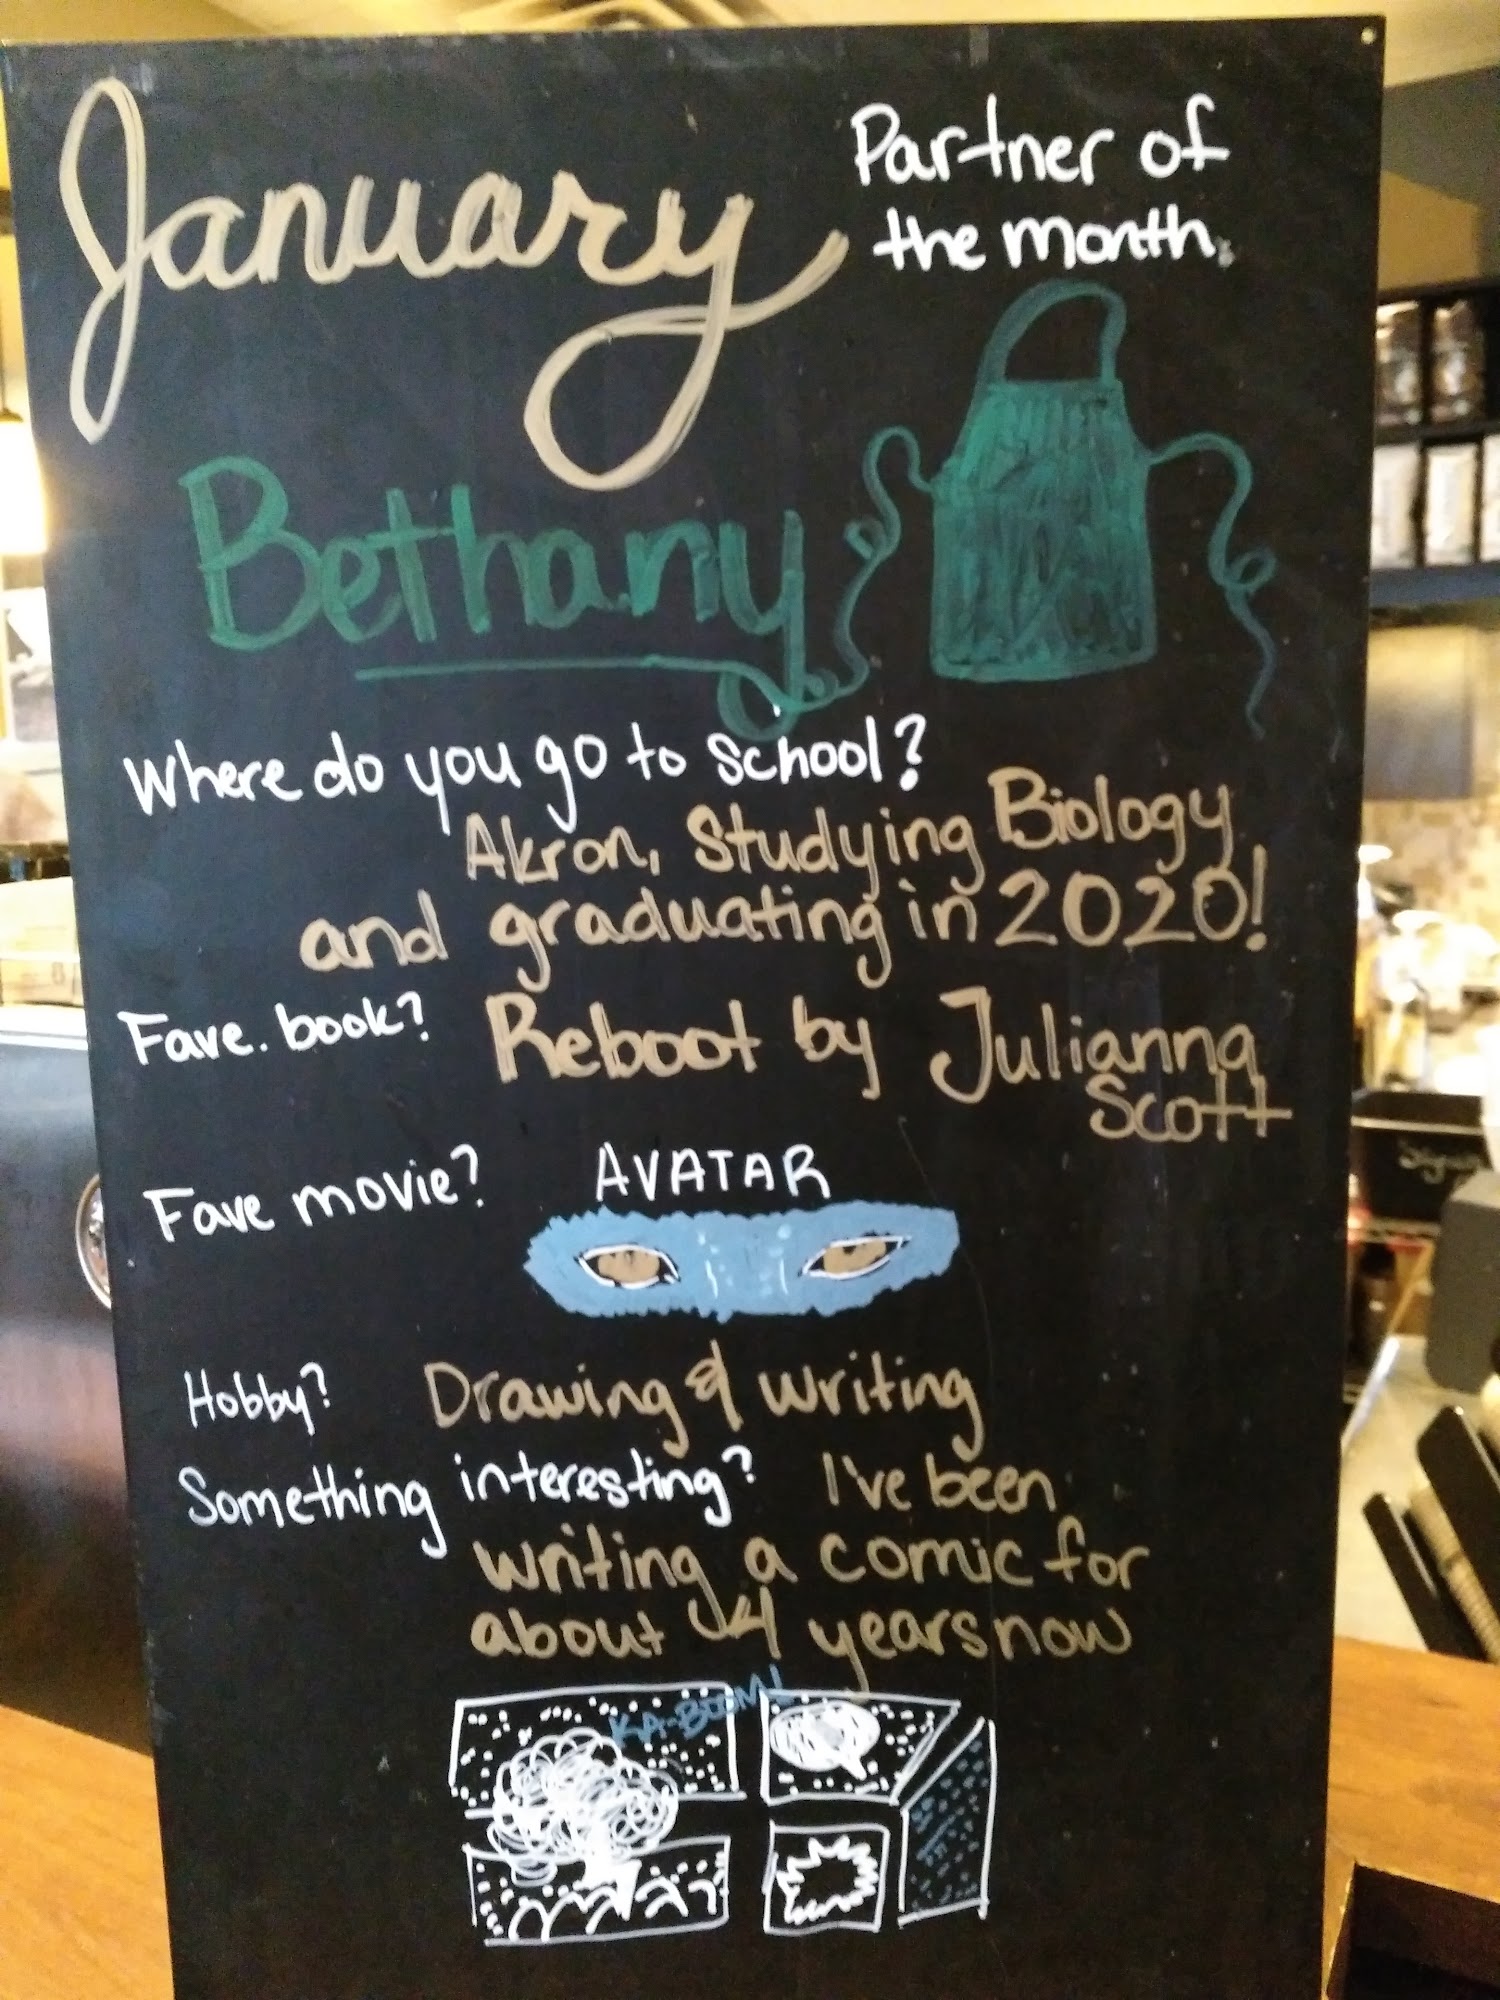 January
Partner of
the month.
Bethany
Where do you go to school?
Akron, Studying Biology
and graduating in 2020!
Fave. book? Reboot by Julianna
Scott
Fave movie? AVATAR
Hobby? Drawing & writing
Something interesting? I've been
writing a comic for
about 4 years now
KA-BOOM!